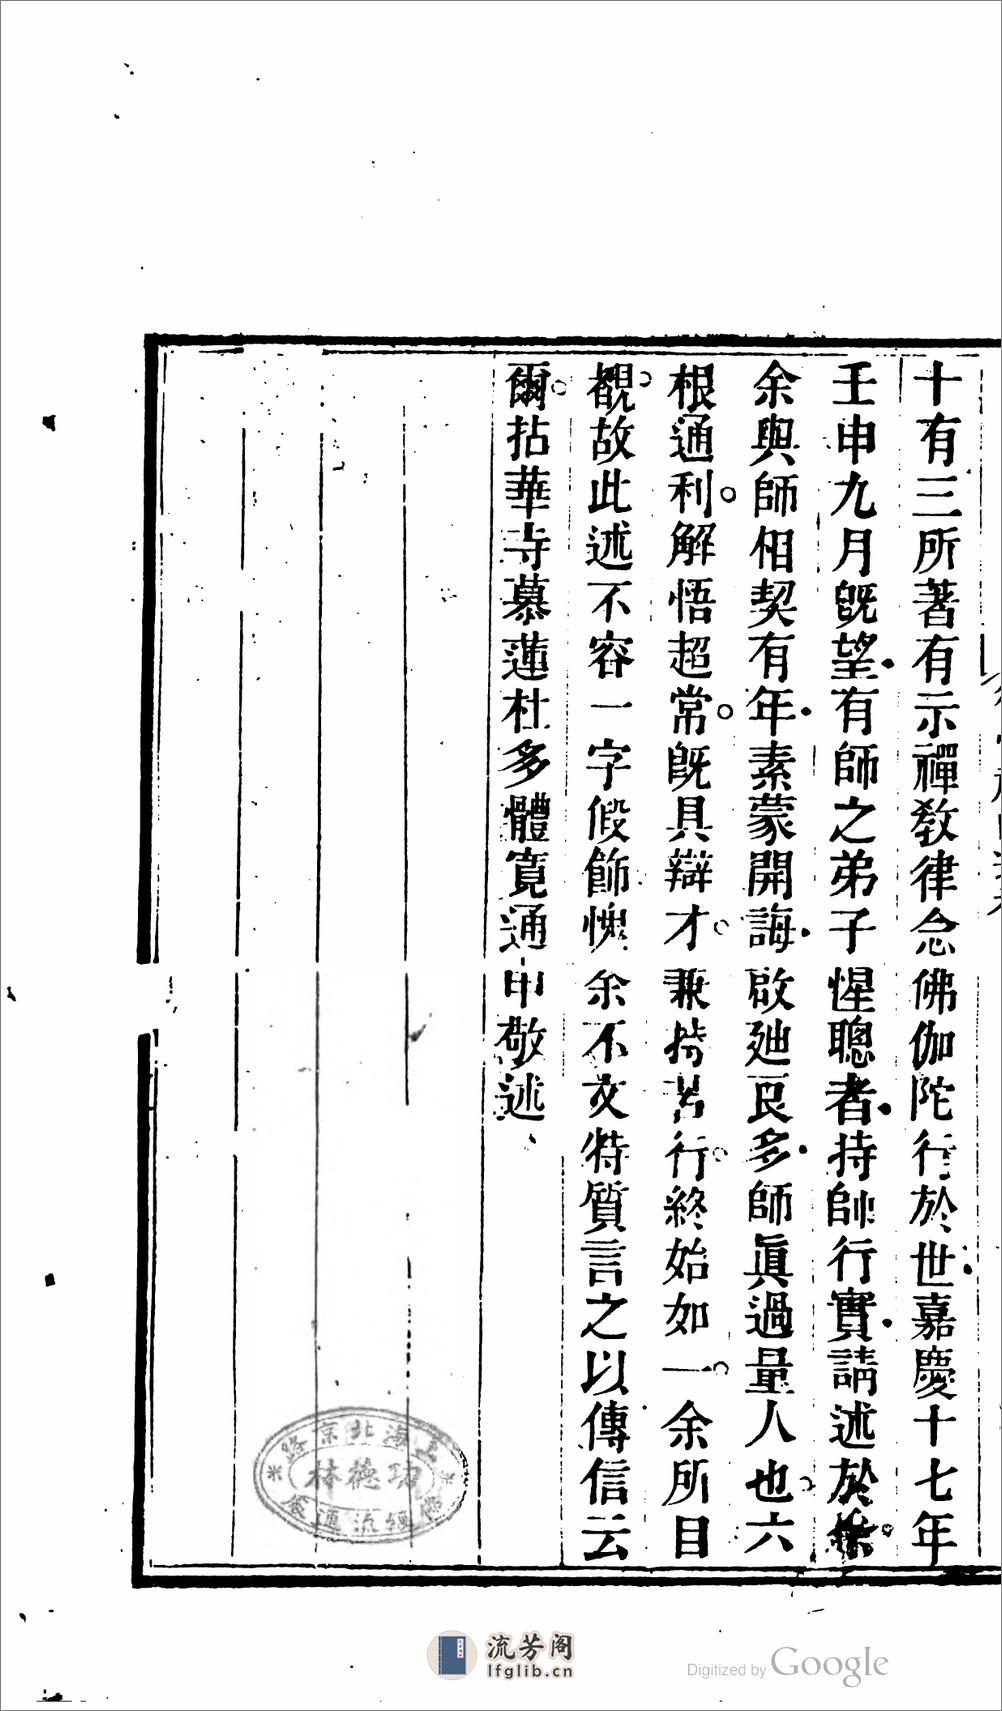 十有三所著有示禪教律念佛伽陀行於世嘉慶十七年
壬申九月旣望有師之弟子惺聰者持師行實請述於余
余與師相契有年素蒙開誨啟廸良多師眞過量人也六
根通利解悟超常旣具辯才兼持苦行終始如一余所目
覩故此述不容一字假飾愧余不文特質言之以傳信云
爾拈華寺慕蓮杜多體寬通申敬述
上海北京路
功德林
佛經流通處
流芳阁
lfglib.cn
Digitized by Google